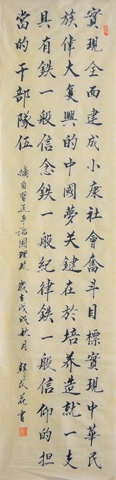 實現全面建成小康社會奮斗目標實現中華民
族偉大复興的中國夢关鍵在於培养造就一支
具有鉄一般信念鉄一般紀律鉄一般信仰的担
當的干部隊伍 摘自習近平治國理政 歲在戊戌秋月 書